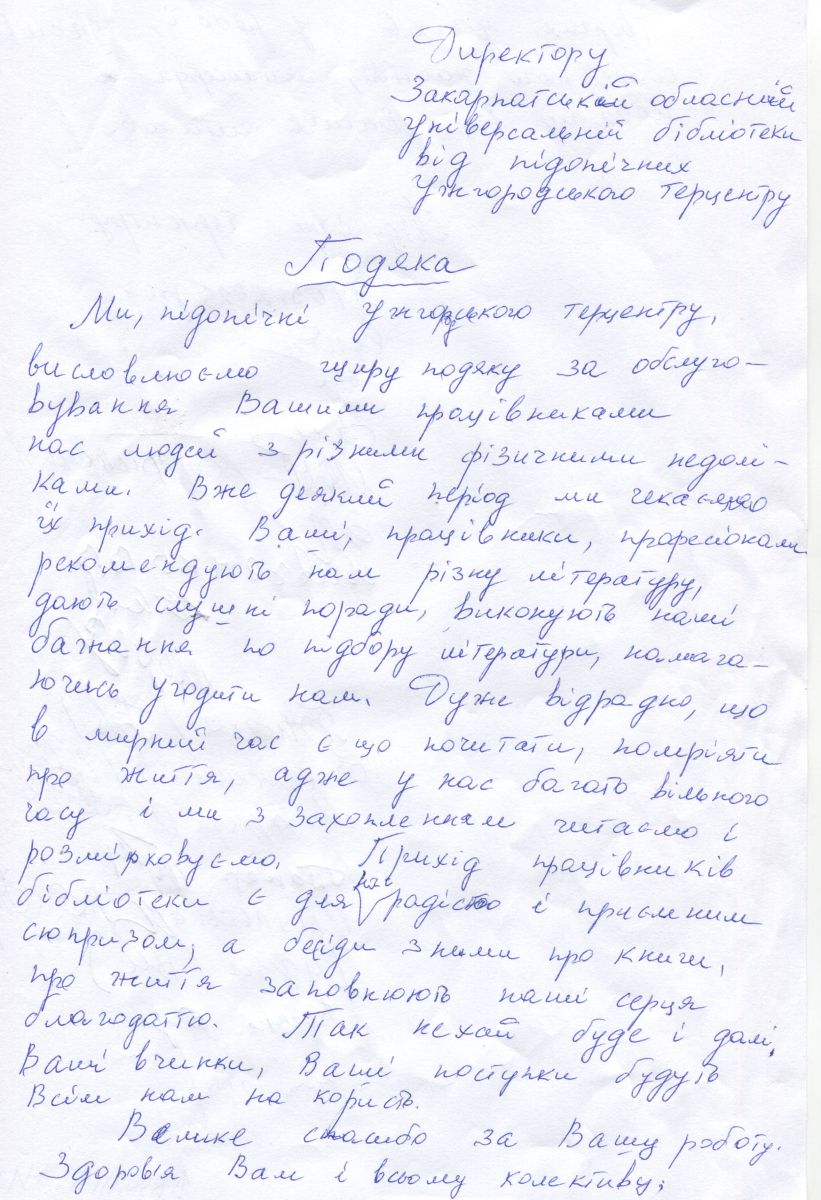 Директору
Закарпатській обласній
універсальній бібліотеки
від підопічних
Ужгородського терцентру
Подяка
Ми, підопічні Ужгородського терцентру,
висловлюємо щиру подяку за обслуго-
вування Вашими працівниками
нас людей з різними фізичними недолі-
ками. Вже деякий період ми чекаємо
їх прихід. Ваші, працівники, професіонали
рекомендують нам різну літературу,
дають слушні поради, виконують наші
бажання по підбору літератури, намага-
ючись угодити нам. Дуже відрадно, що
в мирний час є що почитати, поміряти
про життя, адже у нас багато вільного
часу і ми з захопленням читаємо і
розмірковуємо. Прихід працівників
бібліотеки є для нас радістю і приємним
сюпризом, а бесіди з ними про книги,
про життя заповнюють наші серця
благодаттю. Так нехай буде і далі.
Ваші вчинки, Ваші поступки будуть
Всім нам на користь.
Велике спасибо за Вашу роботу.
Здоров'я Вам і всьому колективу.